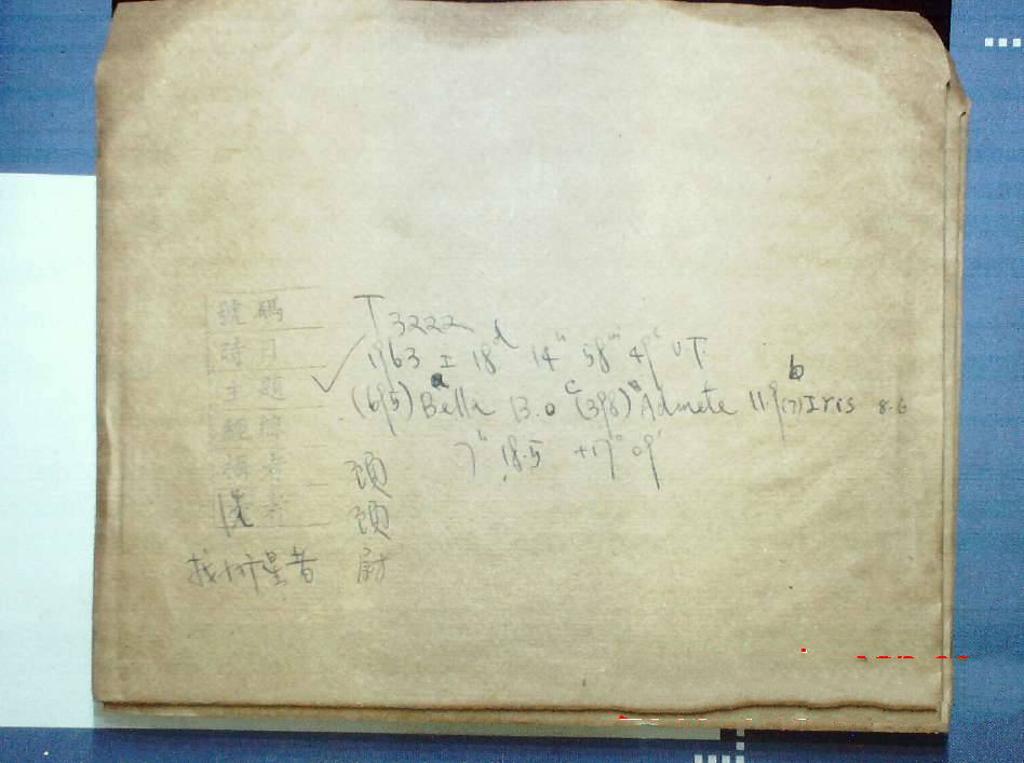 號碼
T 3222
時日
1963 I 18d 14h 58m 49s UT
主題
(695) Bella 13.0 (398) Admete 11.9 (7) Iris 8.6
a c b
7h 18.5 +17° 09'
者
洗者
找小行星者